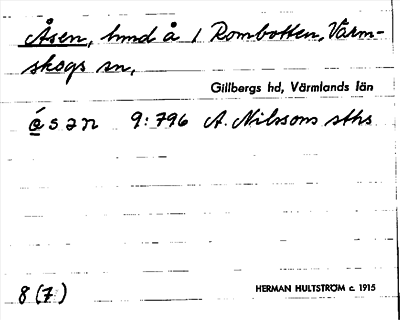 Åsen, hmd å 1 Rombotten, Värm-
skogs sn,
Gillbergs hd, Värmlands län
ǻsǝn 9:796 A. Nilssons sths
8 (7)
HERMAN HULTSTRÖM c. 1915